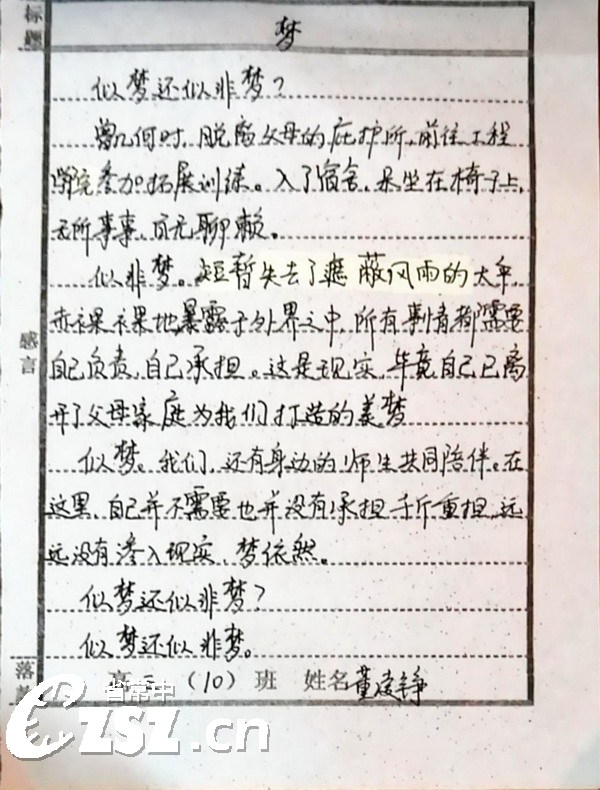 标题
梦
似梦还似非梦？
曾几何时，脱离父母的庇护所，前往工程
学院参加拓展训练。入了宿舍，呆坐在椅子上，
无所事事，百无聊赖。
似非梦。短暂失去了遮蔽风雨的大伞，
赤裸裸地暴露于外界之中，所有事情都需要
自己负责，自己承担。这是现实，毕竟自己已离
开了父母家庭为我们打造的美梦
感言
似梦。我们，还有身边的师生共同陪伴。在
这里，自己并不需要也并没有承担千斤重担，远
远没有渗入现实 梦依然。
似梦还似非梦？
似梦还似非梦。
落款
高（10）班 姓名董凌铮
省常中
CZSZ.cn